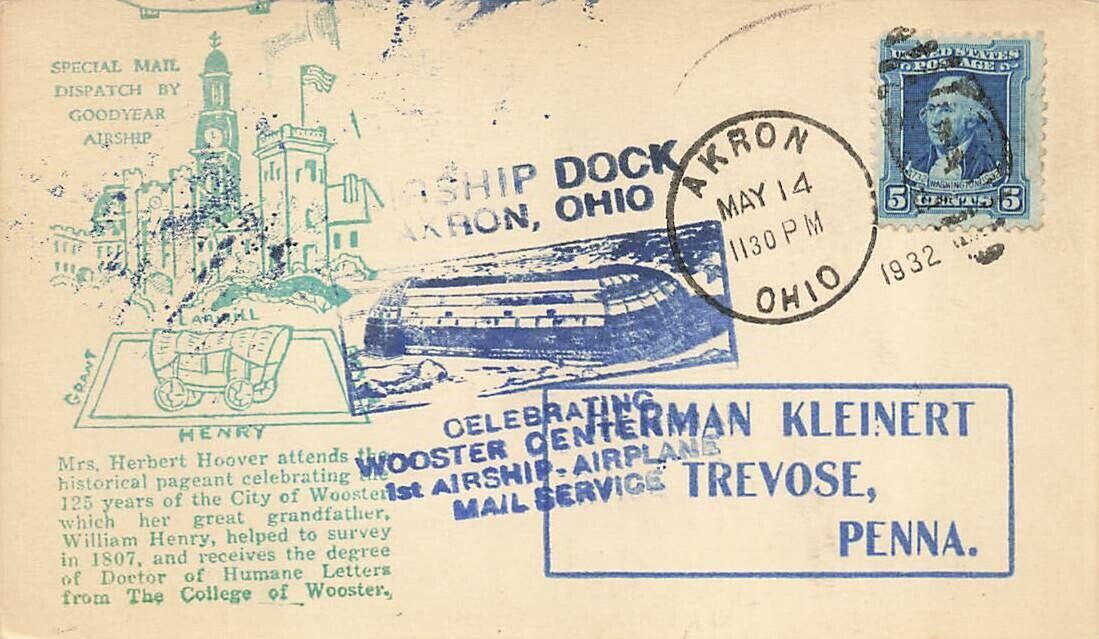 SPECIAL MAIL
DISPATCH BY
GOODYEAR
AIRSHIP
DOCK
AKRON, OHIO
AKRON
MAY 14
1130 PM
OHIO
1932
UNITED STATES
POSTAGE
WASHINGTON
5 CENTS 5
LARWILL
GRANT
HENRY
Mrs. Herbert Hoover attends the
historical pageant celebrating the
125 years of the City of Wooster
which her great grandfather,
William Henry, helped to survey
in 1807, and receives the degree
of Doctor of Humane Letters
from The College of Wooster.
CELEBRATING
WOOSTER CENTER
1st AIRSHIP-AIRPLANE
MAIL SERVICE
HERMAN KLEINERT
TREVOSE,
PENNA.